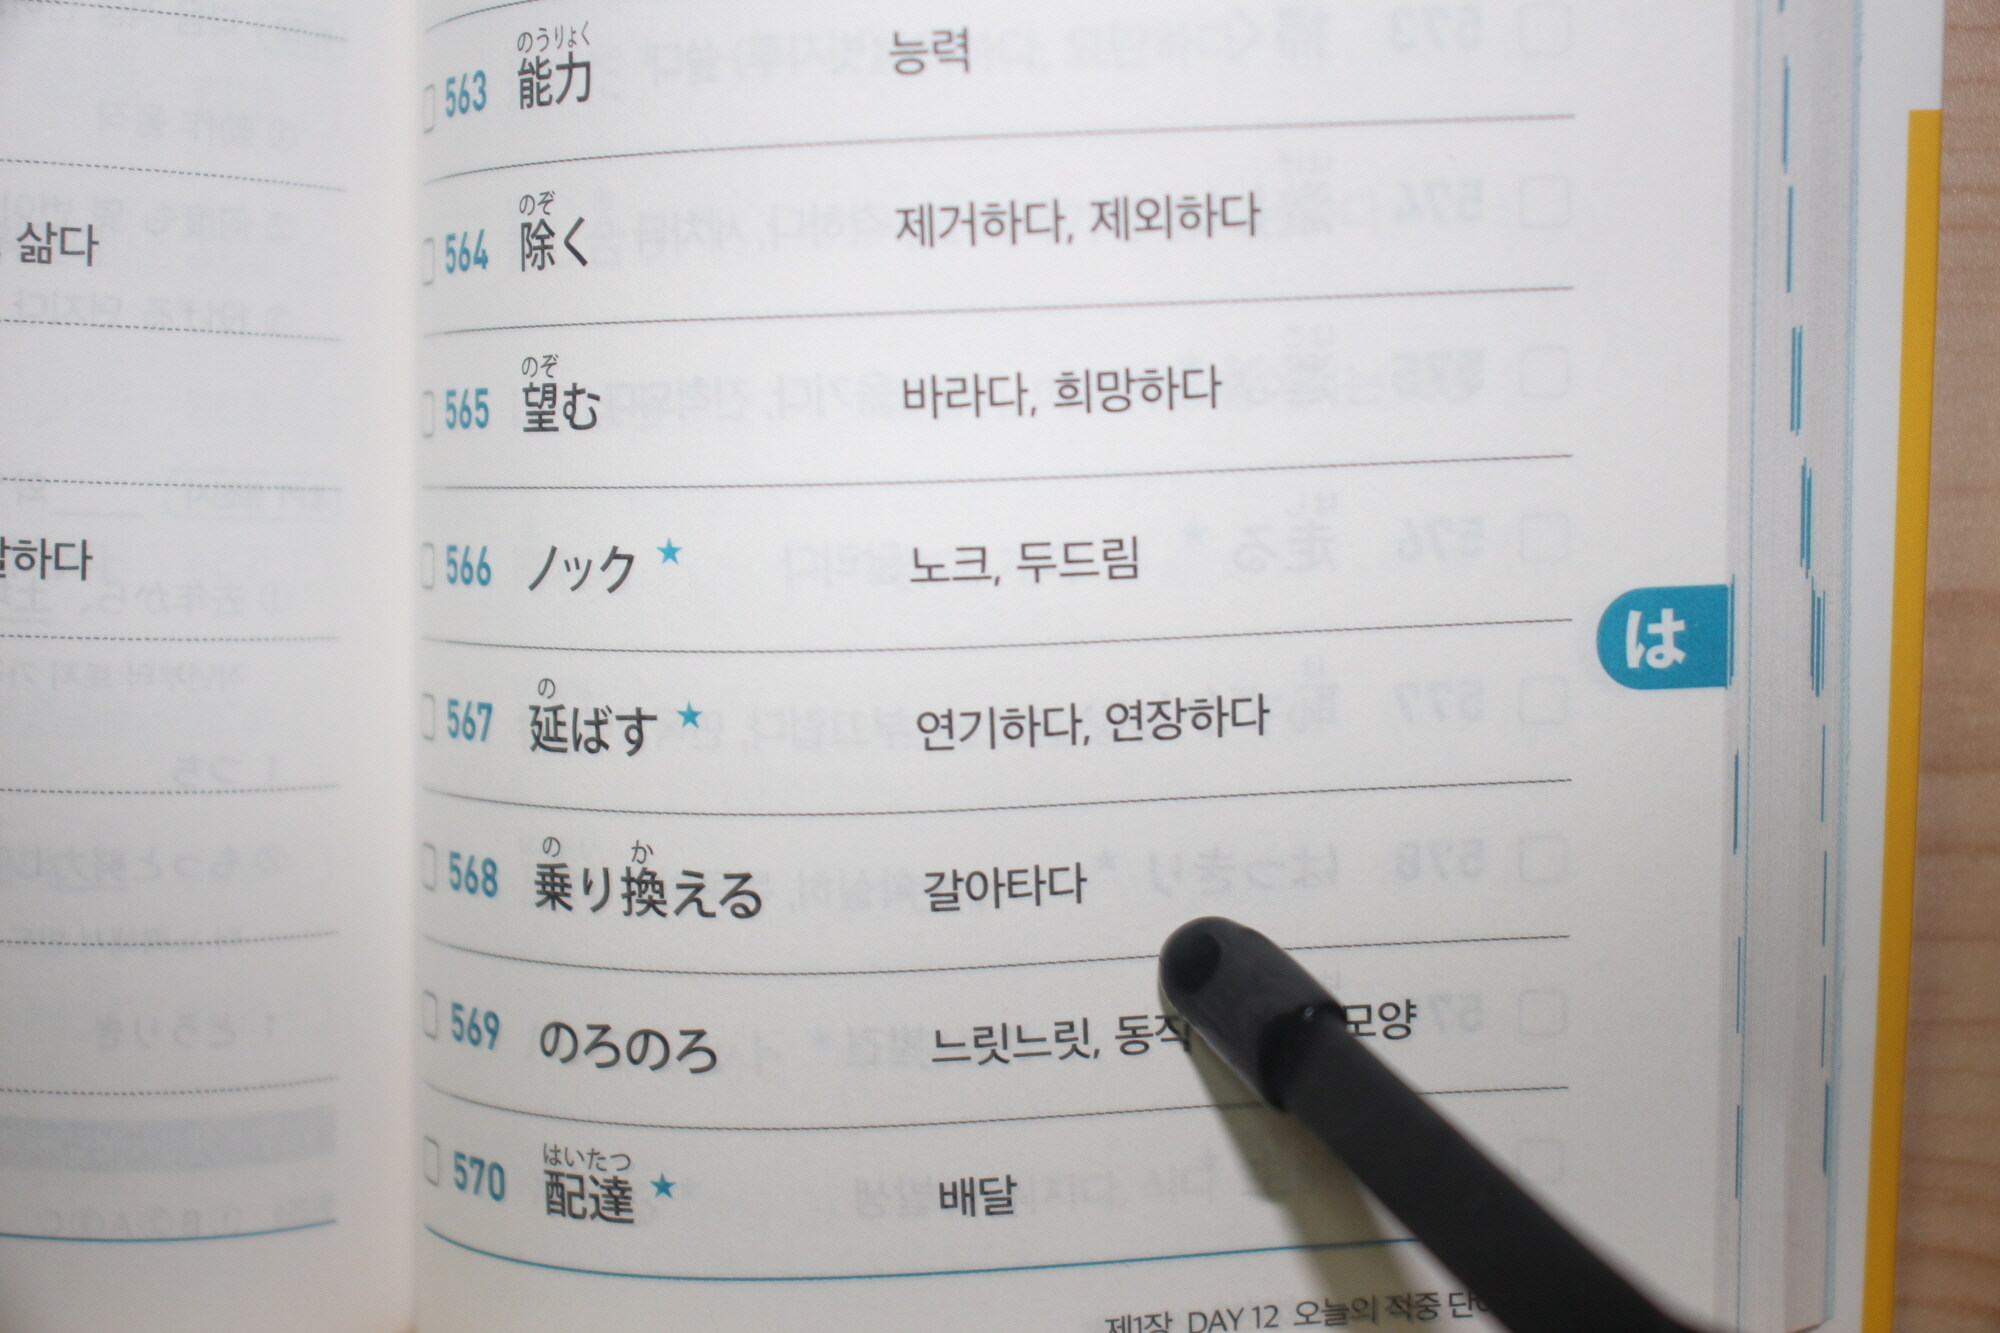 삶다
하다
のうりょく
563 能力 능력
のぞ
564 除く 제거하다, 제외하다
のぞ
565 望む 바라다, 희망하다
566 ノック ★ 노크, 두드림
は
の
567 延ばす ★ 연기하다, 연장하다
の か
568 乗り換える 갈아타다
569 のろのろ 느릿느릿, 모양
はいたつ
570 配達 ★ 배달
제1장 DAY 12 오늘의 적중